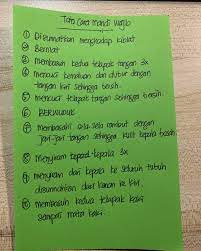 Tata Cara Mandi Wajib
① Disunnatkan menghadap kiblat
② Berniat
③ Membasuh kedua telapak tangan 3x
④ Mencuci kemaluan dan dubur dengan
tangan kiri sehingga bersih.
⑤ Mencuci telapak tangan sehingga bersih.
⑥ BERWUDUK
⑦ Membasahi sela-sela rambut dengan
jari-jari tangan sehingga kulit kepala basah.
⑧ Menyiram kepala 3x
⑨ Menyiram dari kepala ke seluruh tubuh
disunnahkan dari kanan ke kiri.
⑩ Membasuh kedua telapak kaki
sampai mata kaki.